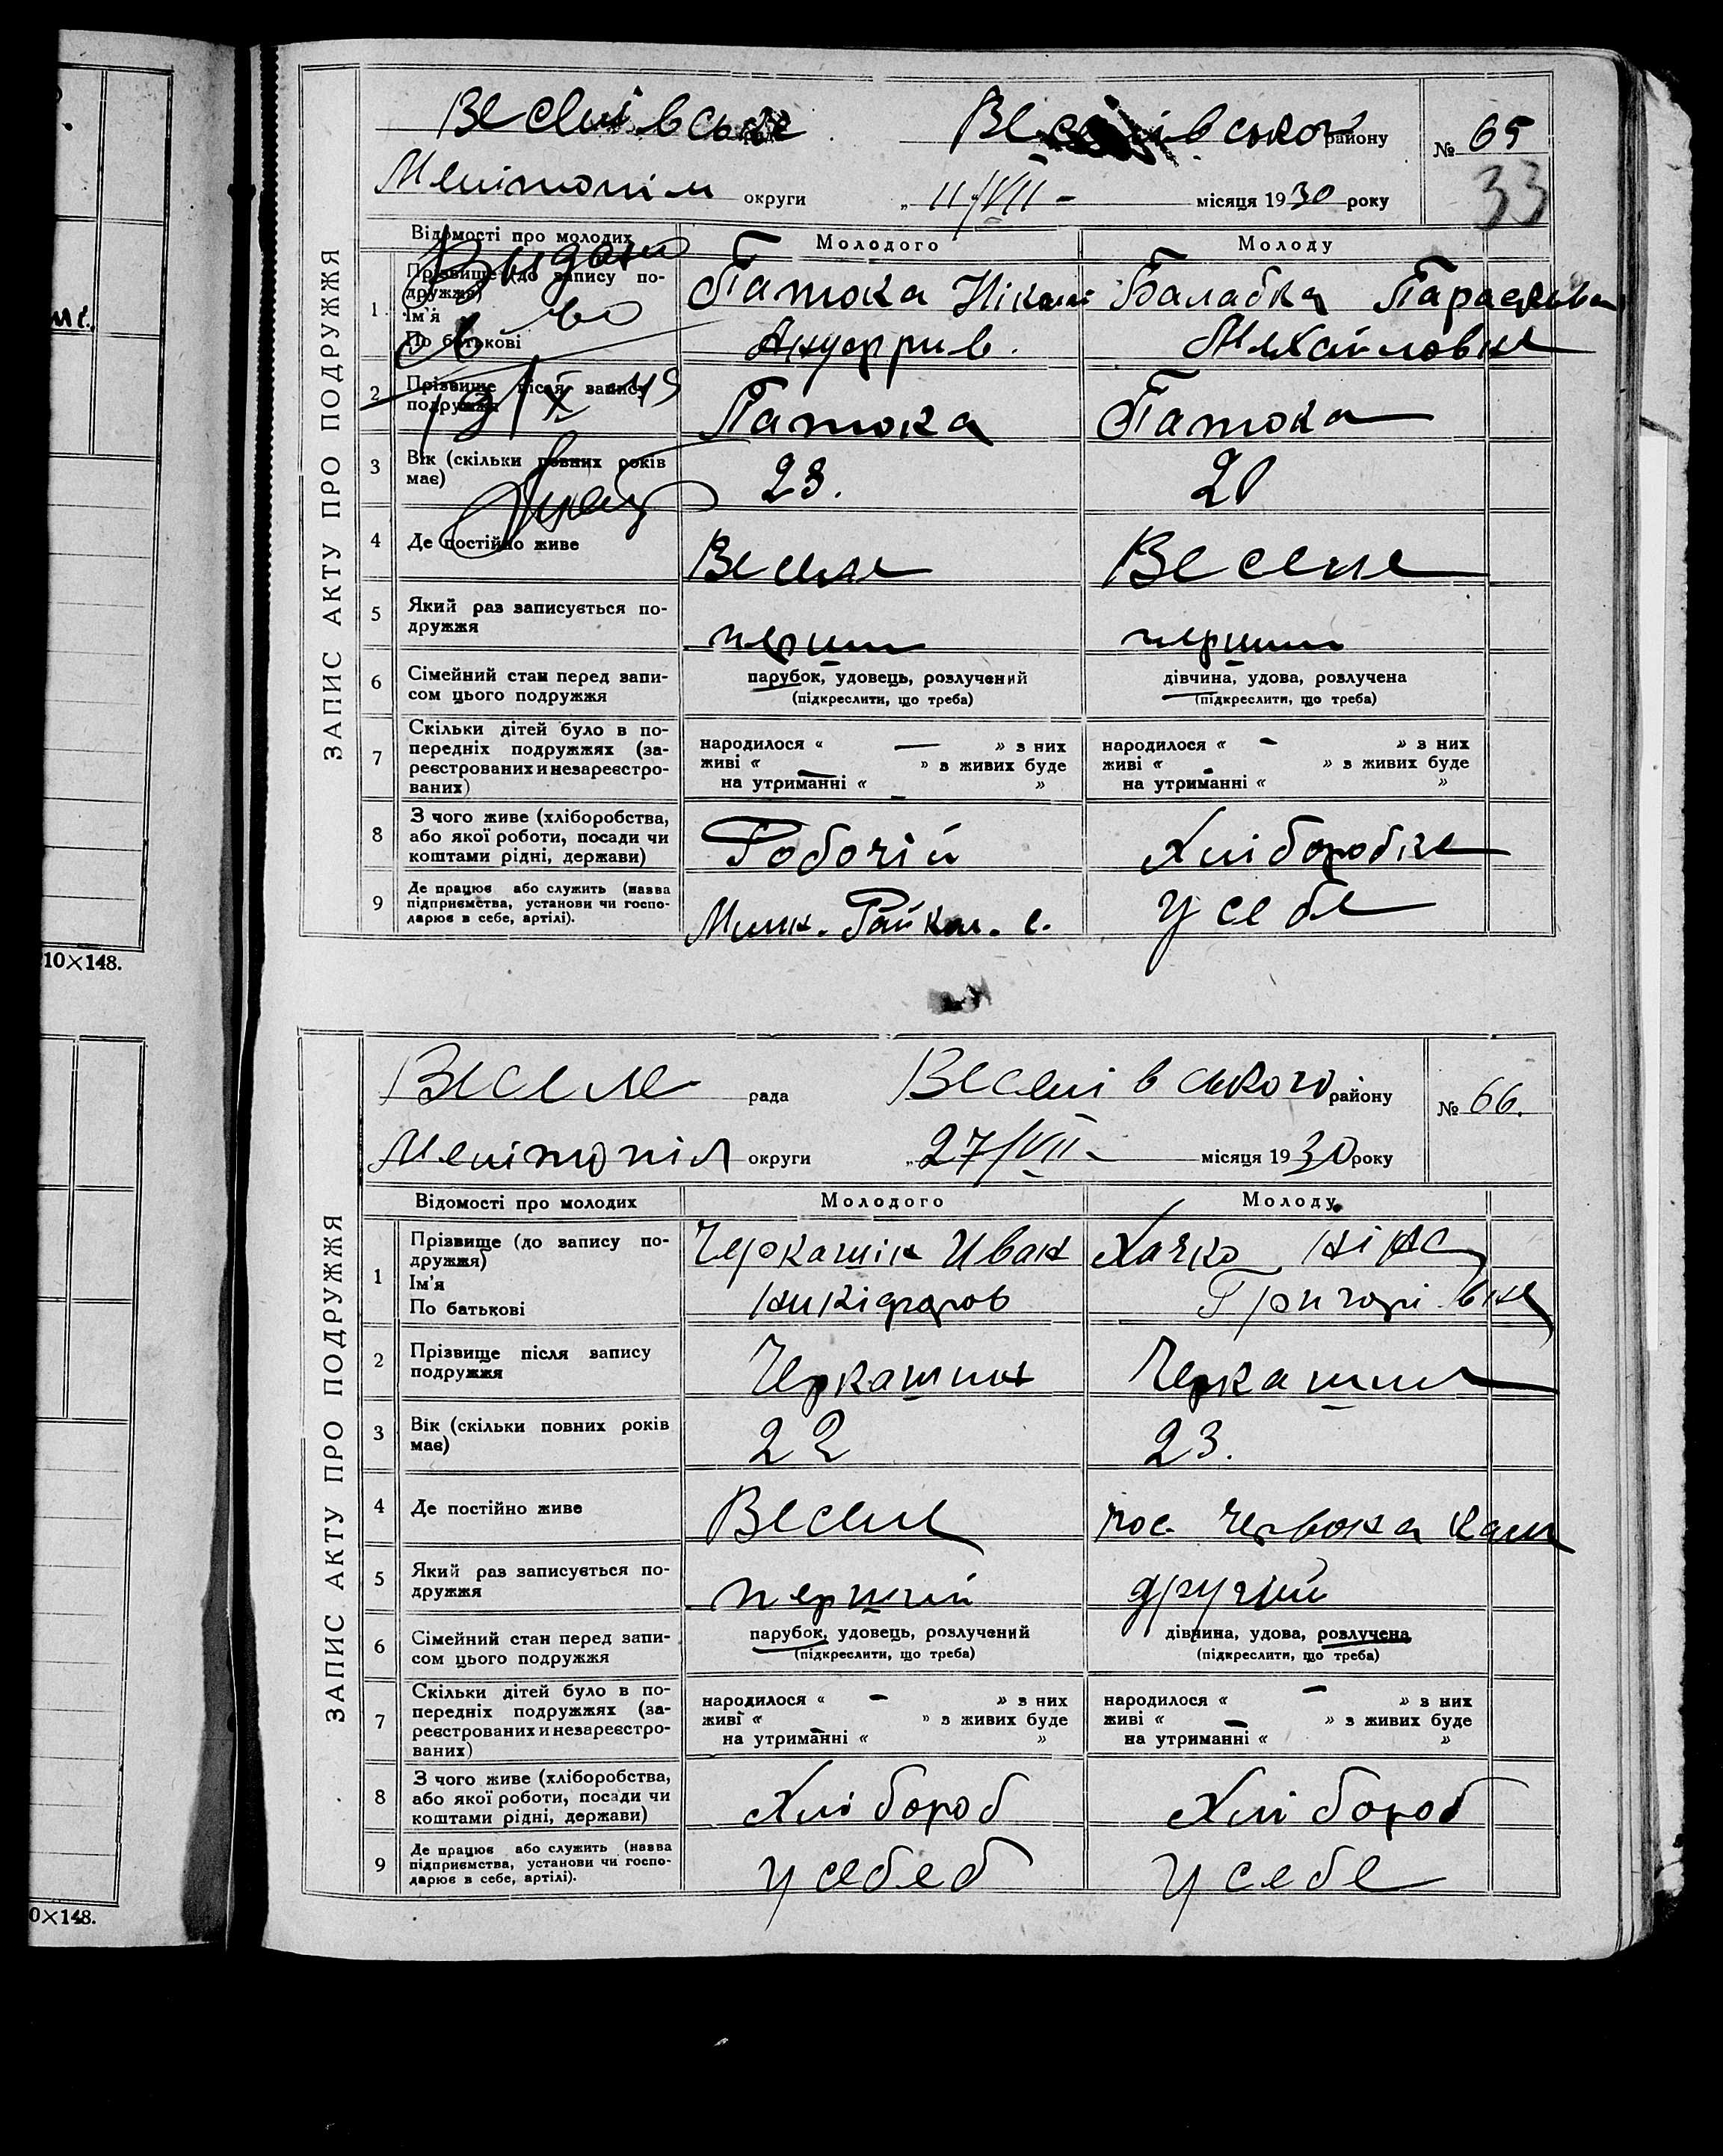 Веселівське рада Веселівської району № 65
Мелітопіл округи „ 11/VII - місяця 1930 року
33
ЗАПИС АКТУ ПРО ПОДРУЖЖЯ
Відомості про молодих Молодого Молоду
1 Прізвище (до запису по-
дружжя)
Ім'я
По батькові
Патока Ніколай Балабка Параскова
Ануфрив. Михайловна
Видано
св во
2 Прізвище після запису
подружжя
Патока Патока
3 Вік (скільки повних років
має)
23. 20
4 Де постійно живе Веселе Веселе
5 Який раз записується по-
дружжя
перший перший
6 Сімейний стан перед запи-
сом цього подружжя
парубок, удовець, розлучений дівчина, удова, розлучена
(підкреслити, що треба) (підкреслити, що треба)
7 Скільки дітей було в по-
передніх подружжях (за-
реєстрованих и незареєстро-
ваних)
народилося « — » з них народилося « - » з них
живі « » з живих буде живі « » з живих буде
на утриманні « » на утриманні « »
8 З чого живе (хліборобства,
або якої роботи, посади чи
коштами рідні, держави)
Робочій Хлібороbка
9 Де працює або служить (назва
підприємства, установи чи госпо-
дарює в себе, артілі).
Райком. с. у себе
10×148.
Веселе рада Веселівського району № 66.
Мелітопіл округи „ 27/VII - місяця 1930 року
ЗАПИС АКТУ ПРО ПОДРУЖЖЯ
Відомості про молодих Молодого Молоду
1 Прізвище (до запису по-
дружжя)
Ім'я
По батькові
Черкашін Иван Хачко Ніна
Никіфоров Григорівна
2 Прізвище після запису
подружжя
Черкашин Черкашин
3 Вік (скільки повних років
має)
22 23.
4 Де постійно живе Веселе пос. Червона
5 Який раз записується по-
дружжя
перший другий
6 Сімейний стан перед запи-
сом цього подружжя
парубок, удовець, розлучений дівчина, удова, розлучена
(підкреслити, що треба) (підкреслити, що треба)
7 Скільки дітей було в по-
передніх подружжях (за-
реєстрованих и незареєстро-
ваних)
народилося « - » з них народилося « - » з них
живі « » з живих буде живі « » з живих буде
на утриманні « » на утриманні « »
8 З чого живе (хліборобства,
або якої роботи, посади чи
коштами рідні, держави)
Хлібороб Хлібороб
9 Де працює або служить (назва
підприємства, установи чи госпо-
дарює в себе, артілі).
у себеб у себе
0×148.